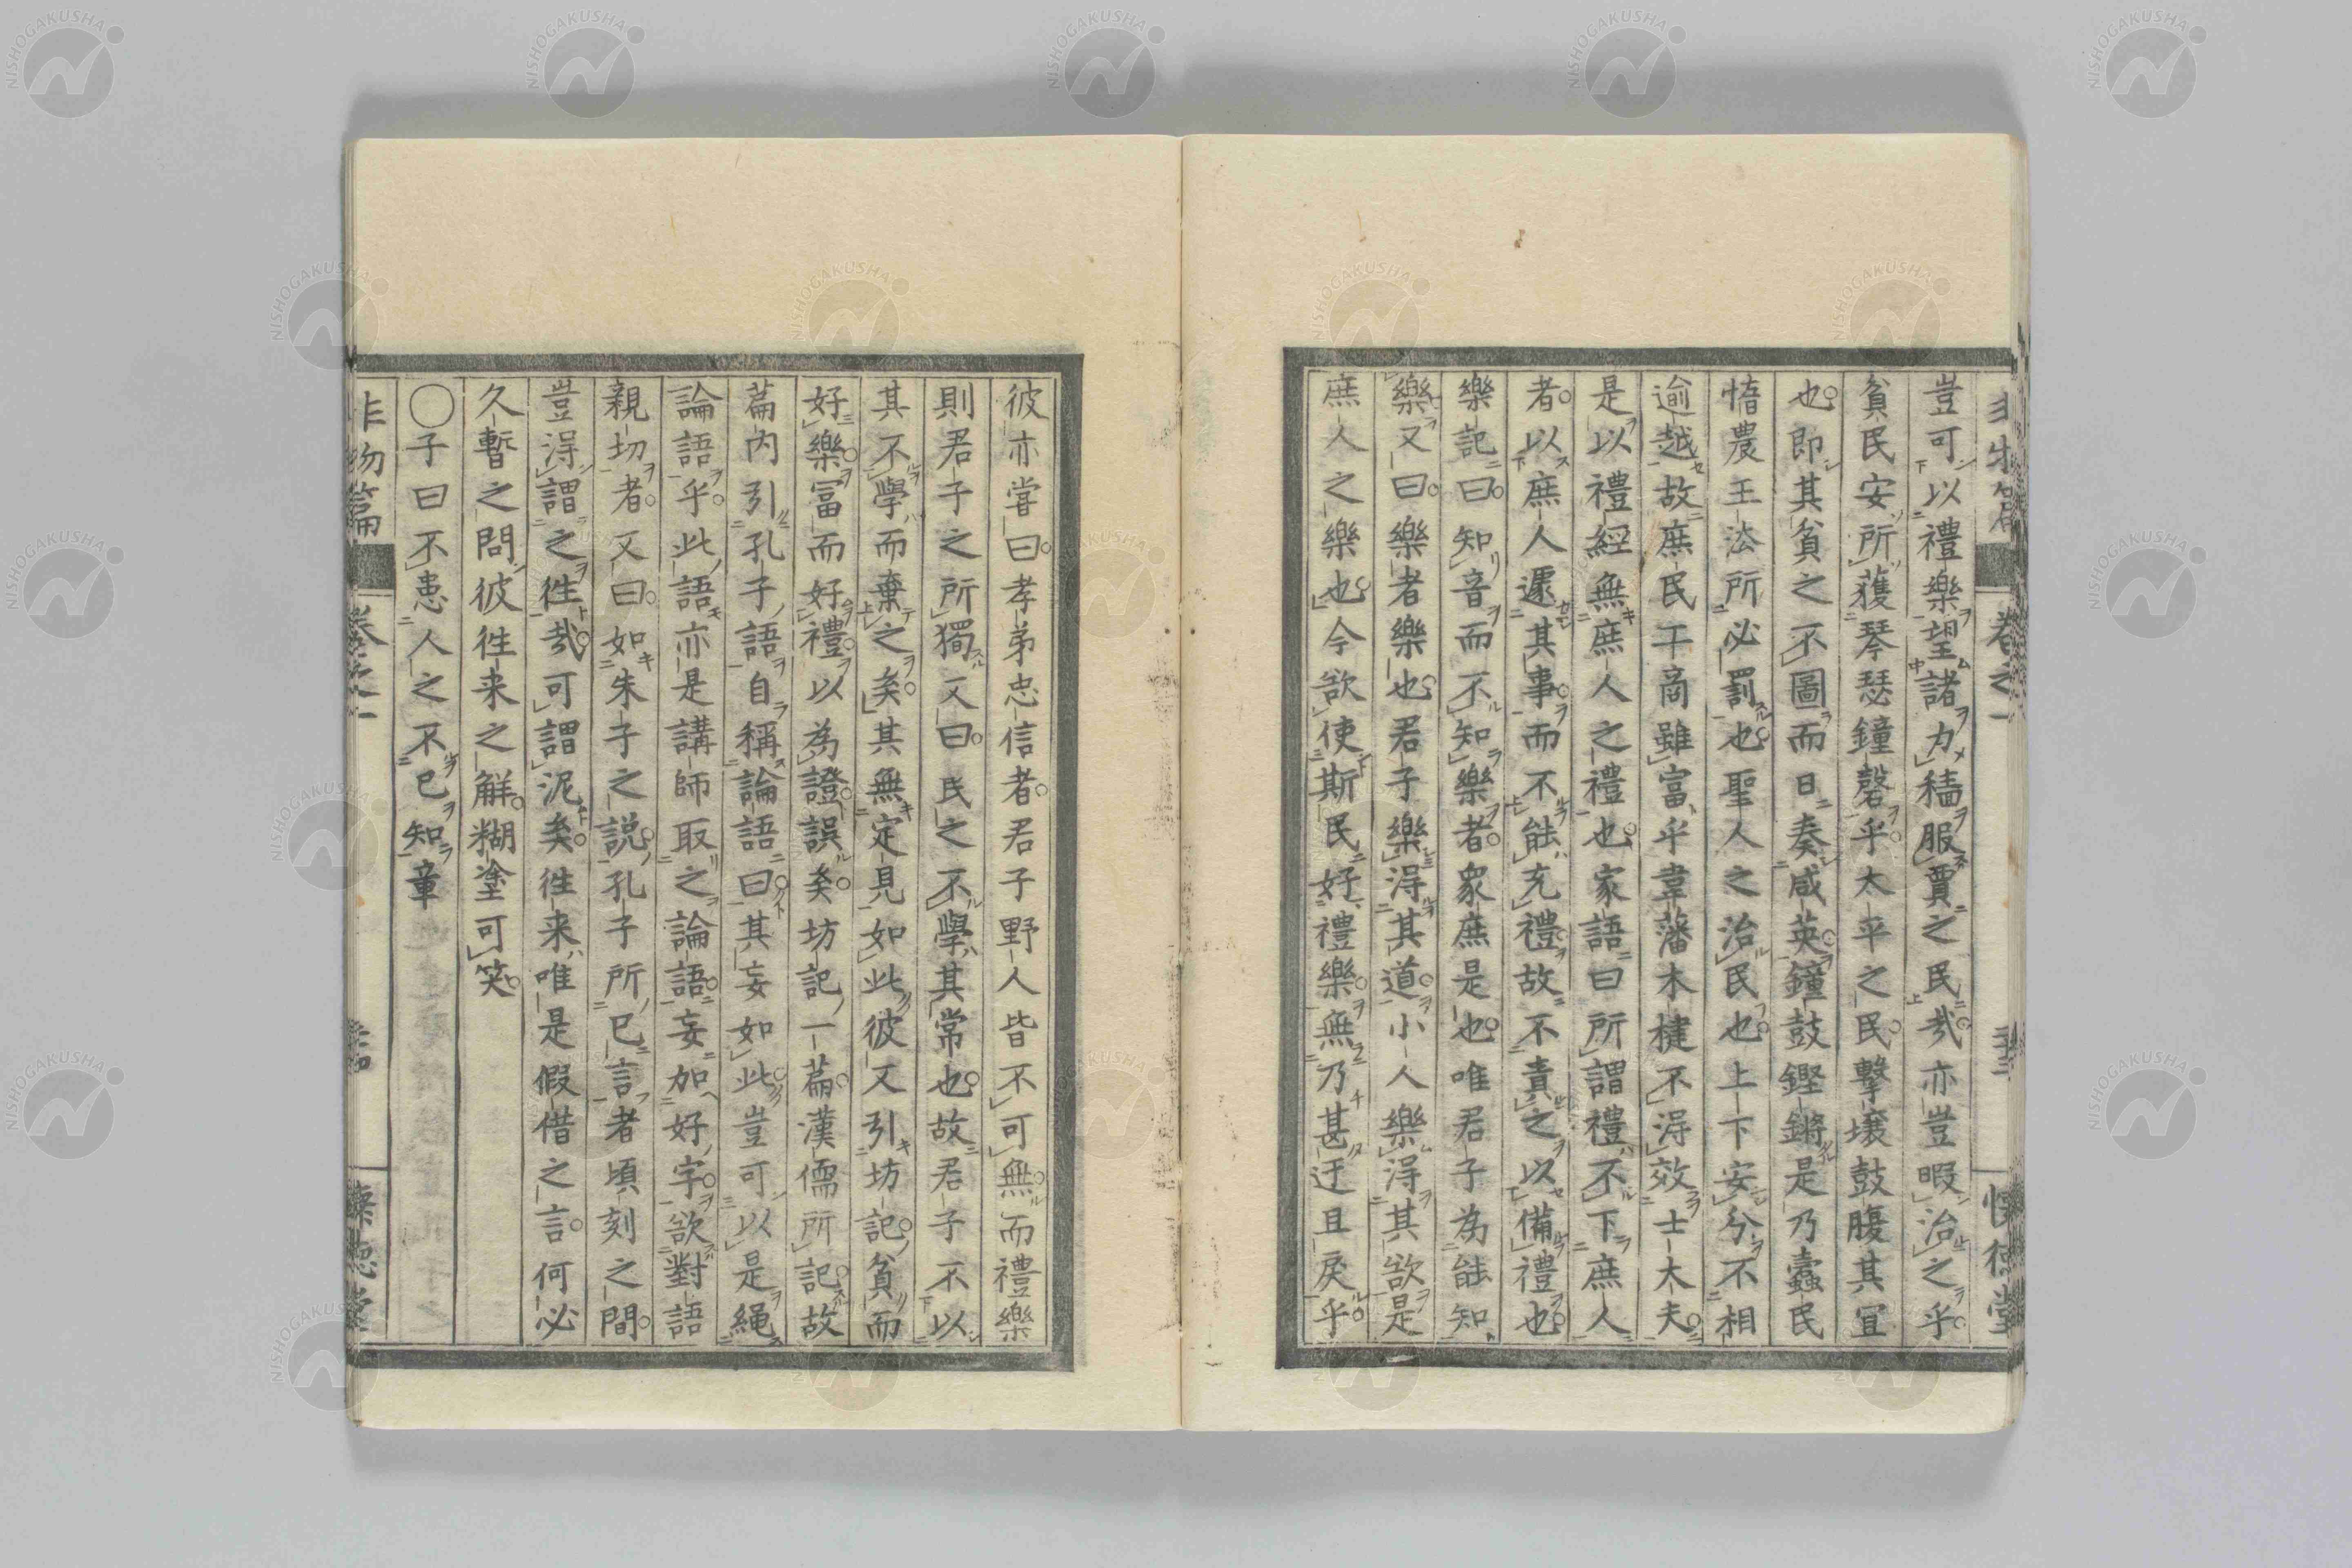 豈可以禮樂望諸力穡服賈之民哉亦豈暇治之乎
貧民安所獲琴瑟鐘磬乎太平之民擊壤鼓腹其宜
也即其貧之不圖而日奏咸英鐘鼓鏗鏘是乃蠹民
惰農王法所必罰也聖人之治民也上下安分不相
逾越故庶民工商雖富乎韋藩木楗不得效士大夫
是以禮經無庶人之禮也家語曰所謂禮不下庶人
者以庶人遽其事而不能充禮故不責之以備禮也
樂記曰知音而不知樂者衆庶是也唯君子為能知
樂又曰樂者樂也君子樂得其道小人樂得其欲是
庶人之樂也今欲使斯民好禮樂無乃甚迂且戾乎
彼亦嘗曰孝弟忠信者君子野人皆不可無而禮樂
則君子之所獨又曰民之不學其常也故君子不以
其不學而棄之矣其無定見如此彼又引坊記貧而
好樂富而好禮以為證誤矣坊記一篇漢儒所記故
篇內引孔子語自稱論語曰其妄如此豈可以是繩
論語乎此語亦是講師取之論語妄加好字欲對語
親切者又曰如朱子之說孔子所已言者頃刻之間
豈得謂之往哉可謂泥矣往来唯是假借之言何必
久暫之問彼往来之解糊塗可笑
〇子曰不患人之不己知章
非物篇
卷之一
懷德堂
NISHOGAKUSHA